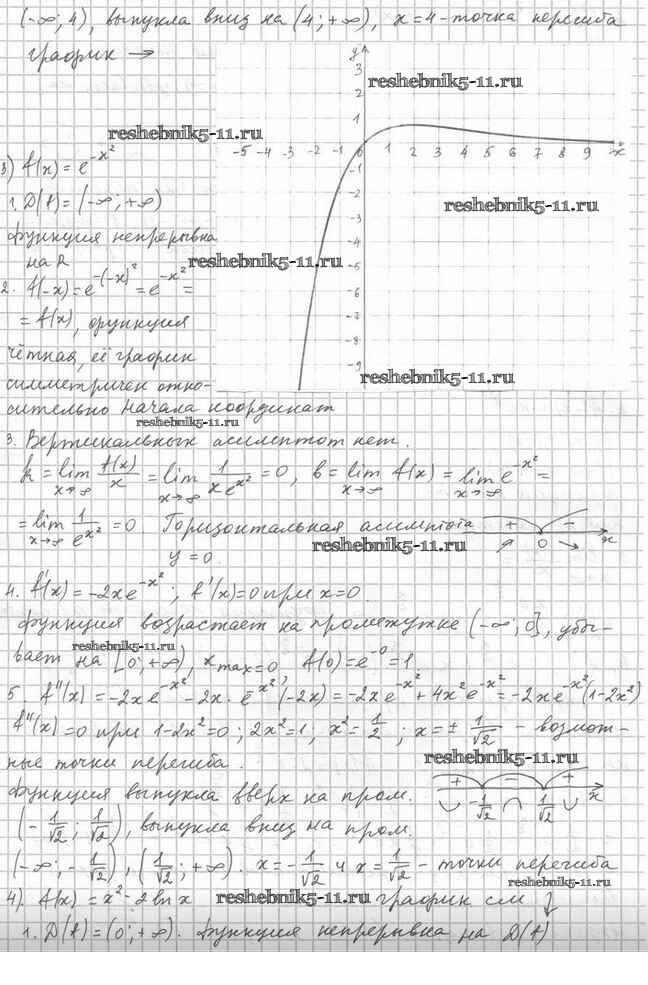 (-∞; 4), выпукла вниз на (4; +∞), x = 4 - точка перегиба
график →
y
reshebnik5-11.ru
3
2
1
reshebnik5-11.ru
-5 -4 -3 -2 -1 0 1 2 3 4 5 6 7 8 9 x
-1
-2
-3
-4
-5
-6
-7
-8
-9
3) f(x) = e^{-x^2}
1. D(f) = (-∞; +∞)
reshebnik5-11.ru
функция непрерывна
на R
reshebnik5-11.ru
2. f(-x) = e^{-(-x)^2} = e^{-x^2} =
= f(x), функция
чётная, её график
reshebnik5-11.ru
симметричен отно-
сительно начала координат
reshebnik5-11.ru
3. Вертикальных асимптот нет.
k = lim_{x→∞} f(x)/x = lim_{x→∞} 1/(x e^{x^2}) = 0, b = lim_{x→∞} f(x) = lim_{x→∞} e^{-x^2} =
= lim_{x→∞} 1/e^{x^2} = 0 Горизонтальная асимптота
+ - 0 x
reshebnik5-11.ru
y = 0
4. f'(x) = -2x e^{-x^2}; f'(x) = 0 при x = 0
функция возрастает на промежутке (-∞; 0], убы-
reshebnik5-11.ru
вает на [0; +∞), x max = 0, f(0) = e^{-0} = 1
5 f''(x) = -2x e^{-x^2} - 2x · e^{-x^2}(-2x) = -2x e^{-x^2} + 4x^2 e^{-x^2} = -2x e^{-x^2}(1-2x^2)
f''(x) = 0 при 1-2x^2 = 0; 2x^2 = 1; x^2 = 1/2; x = ± 1/√2 - возмож-
ные точки перегиба.
reshebnik5-11.ru
+ - +
-1/√2 1/√2 x
функция выпукла вверх на пром.
(-1/√2; 1/√2), выпукла вниз на пром.
(-∞; -1/√2), (1/√2; +∞). x = -1/√2 и x = 1/√2 - точки перегиба
reshebnik5-11.ru
4). f(x) = x^2 - 2 ln x
reshebnik5-11.ru
график см ↓
1. D(f) = (0; +∞). функция непрерывна на D(f)